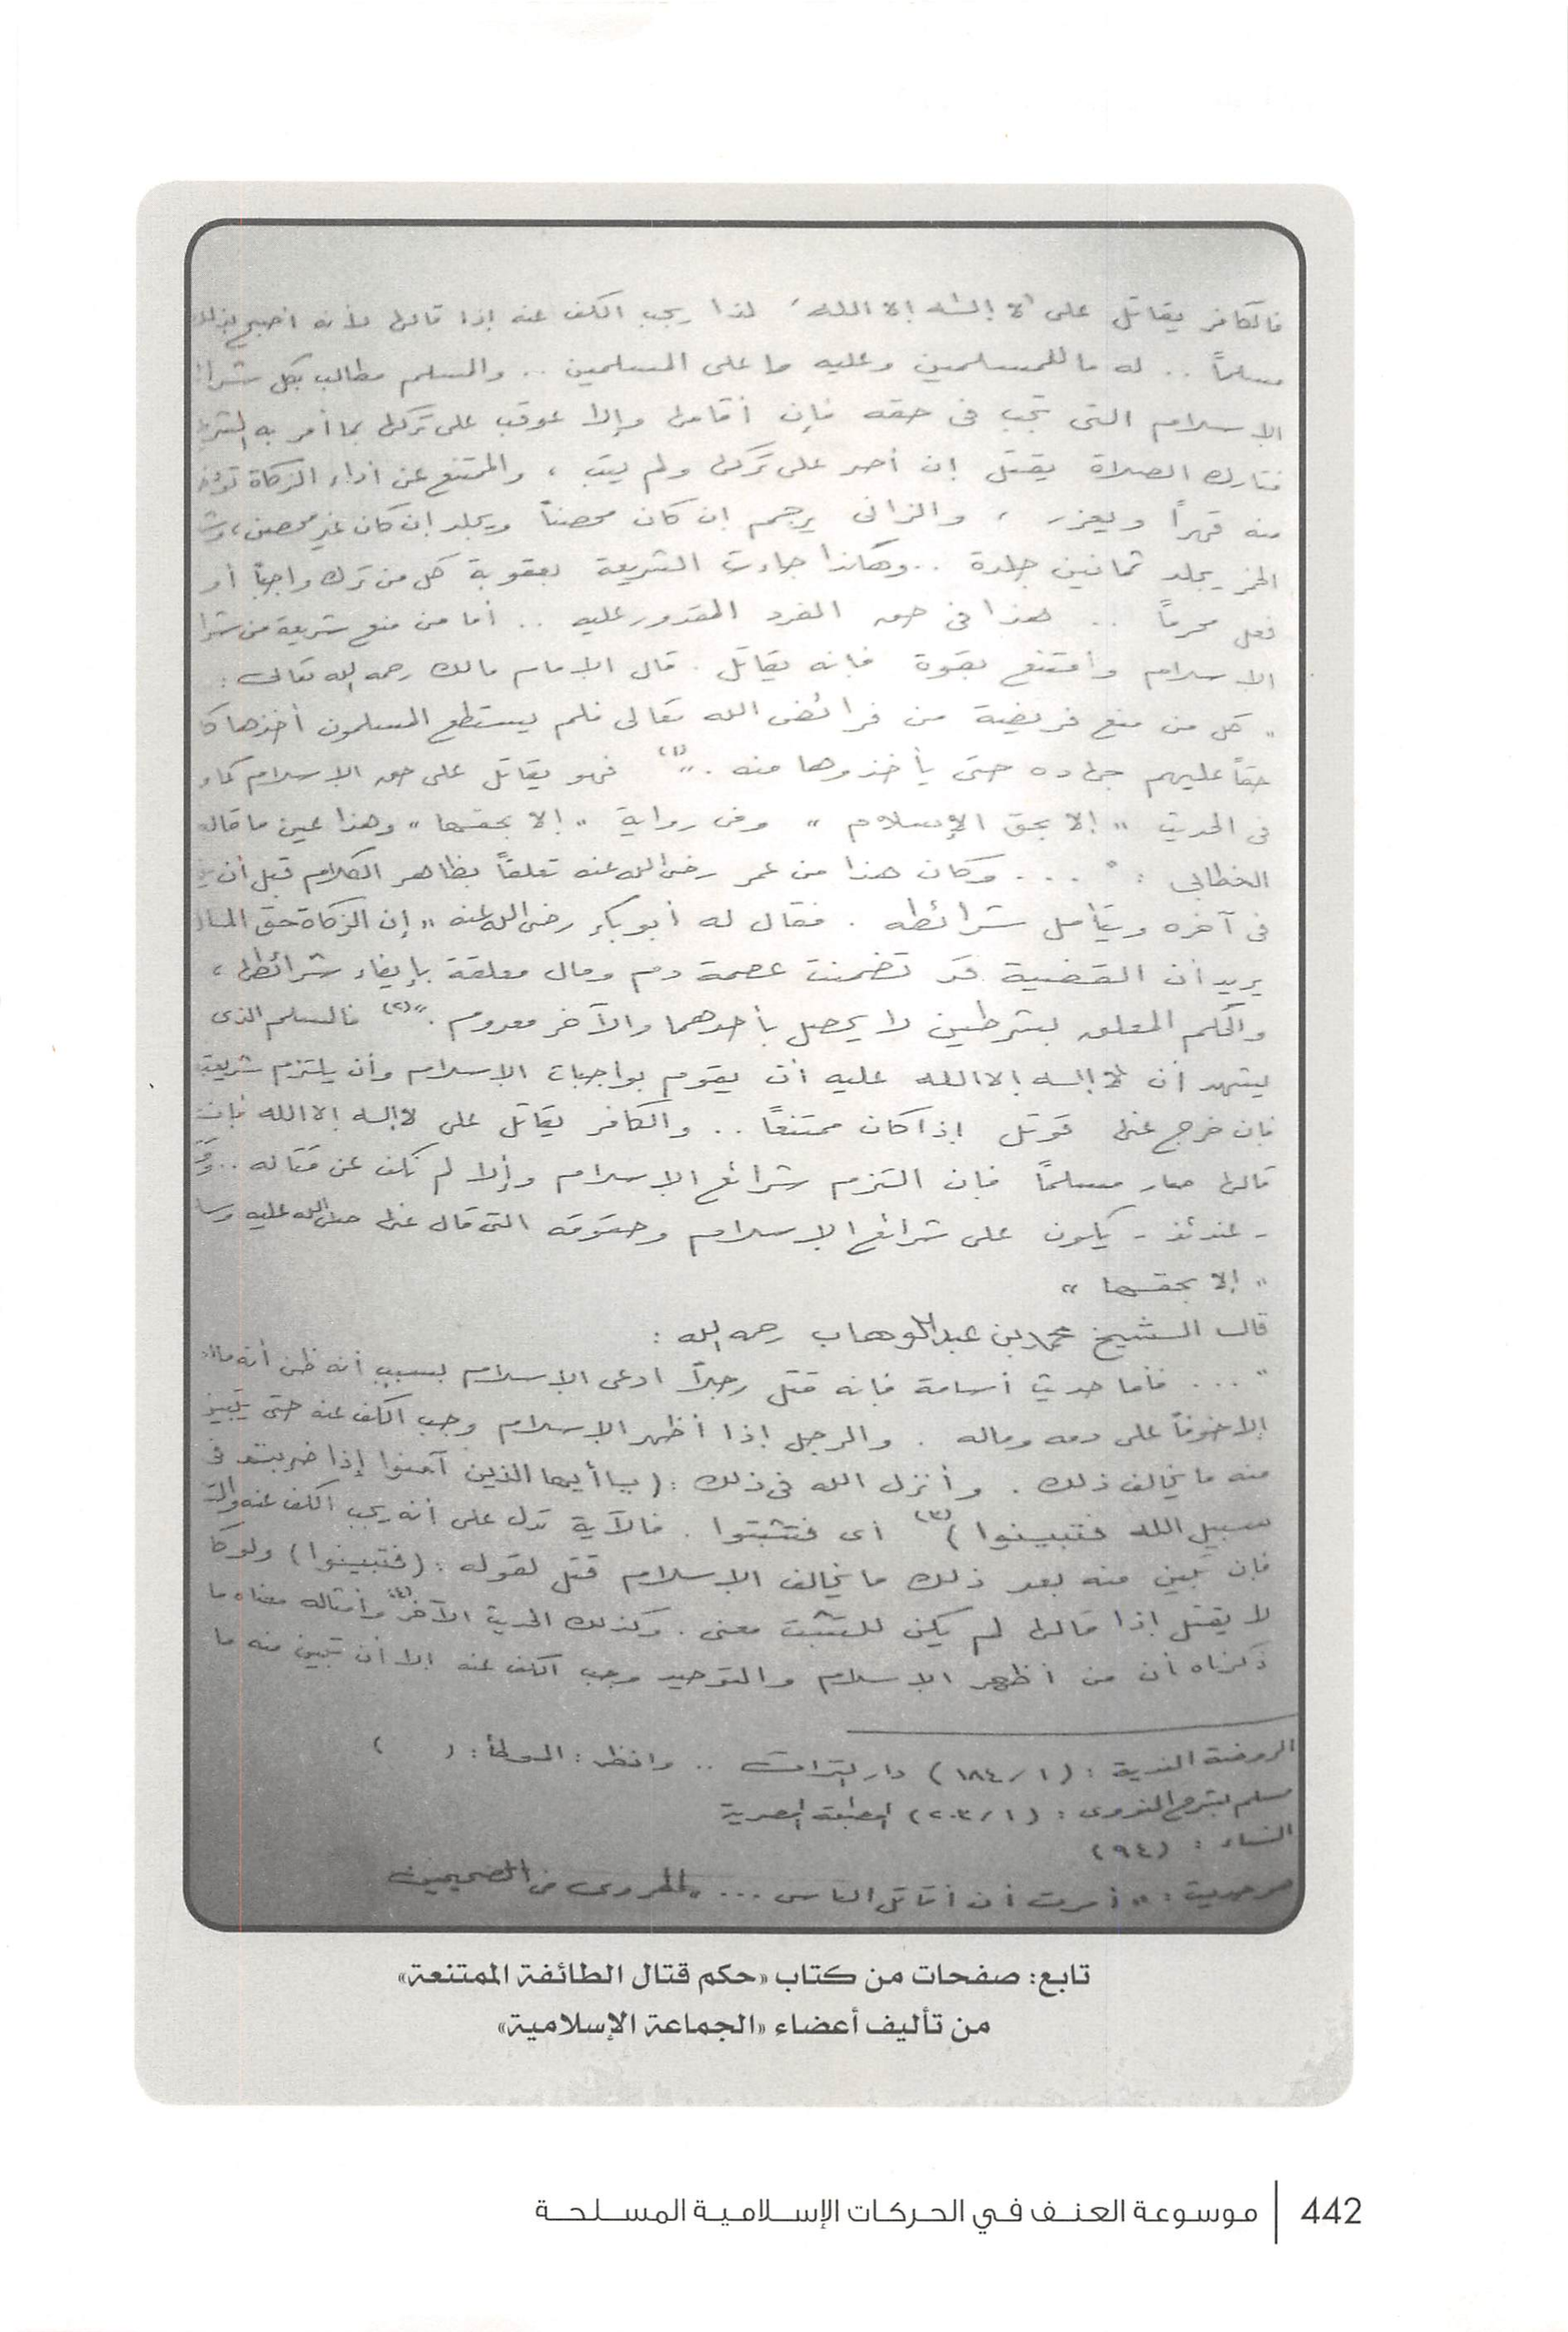 فالكافر يقاتل على "لا إله إلا الله" لذا يجب الكف عنه إذا قالها لأنه أصبح بذلك
مسلماً .. له ما للمسلمين وعليه ما على المسلمين .. والمسلم مطالب بكل شرا
الإسلام التى تجب فى حقه فإن أقامها وإلا عوقب على تركها بما أمر به
فتارك الصلاة يقتل إن أصر على تركها ولم يتب ، والممتنع عن أداء الزكاة تؤخذ
منه قهراً ويعزر ، والزانى يرجم إن كان محصناً ويجلد إن كان غير محصن ،
الخمر يجلد ثمانين جلدة .. وهكذا جاءت الشريعة بعقوبة كل من ترك واجباً أو
فعل محرماً .. هذا فى حق الفرد المقدور عليه .. أما من منع شريعة من شرا
الإسلام وامتنع بقوة فإنه يقاتل . قال الإمام مالك رحمه الله تعالى :
" كل من منع فريضة من فرائض الله تعالى فلم يستطع المسلمون أخذها كا
حقاً عليهم جهاده حتى يأخذوها منه . "(١) فهو يقاتل على حق الإسلام كما و
فى الحديث " إلا بحق الإسلام " وفى رواية " إلا بحقها " وهذا عين ما قاله
الخطابى : " ... وكان هذا من عمر رضى الله عنه تعلقاً بظاهر الكلام قبل أن
فى آخره ويتأمل شرائطه . فقال له أبو بكر رضى الله عنه " إن الزكاة حق المال
يريد أن القضية قد تضمنت عصمة دم ومال معلقة بإيفاء شرائطها ،
والحكم المعلق بشرطين لا يحصل بأحدهما والآخر معدوم . "(٢) فالمسلم الذى
يشهد أن لا إله إلا الله عليه أن يقوم بواجبات الإسلام وأن يلتزم شريعته
فإن خرج عنها قوتل إذا كان ممتنعاً .. والكافر يقاتل على لا إله إلا الله فإن
قالها صار مسلماً فإن التزم شرائع الإسلام وإلا لم نكف عن قتاله ..
- عندئذ - يكون على شرائع الإسلام وحقوقه التى قال عنها صلى الله عليه وسا
" إلا بحقها "
قال الشيخ محمد بن عبد الوهاب رحمه الله :
" ... فأما حديث أسامة فإنه قتل رجلاً ادعى الإسلام بسبب أنه ظن أنه ما
إلا خوفاً على دمه وماله . والرجل إذا أظهر الإسلام وجب الكف عنه حتى يتبين
منه ما يخالف ذلك . وأنزل الله فى ذلك : ( يا أيها الذين آمنوا إذا ضربتم فى
سبيل الله فتبينوا )(٣) أى فتثبتوا . فالآية تدل على أنه يجب الكف عنه والتـ
فإن تبين منه بعد ذلك ما يخالف الإسلام قتل لقوله : ( فتبينوا ) ولو كا
لا يقتل إذا قالها لم يكن للتثبت معنى . وكذلك الحديث الآخر(٤) وأمثاله معناه ما
ذكرناه أن من أظهر الإسلام والتوحيد وجب الكف عنه إلا أن تبين منه ما
الروضة الندية : ( ١ / ١٨٤ ) دار التراث .. وانظر : الموطأ : ( )
مسلم بشرح النووى : ( ١ / ٢٠٣ ) المطبعة المصرية
النساء : ( ٩٤ )
حديث : " أمرت أن أقاتل الناس ... " المروى فى الصحيحين
تابع: صفحات من كتاب «حكم قتال الطائفة الممتنعة»
من تأليف أعضاء «الجماعة الإسلامية»
442 | موسوعة العنف في الحركات الإسلامية المسلحة